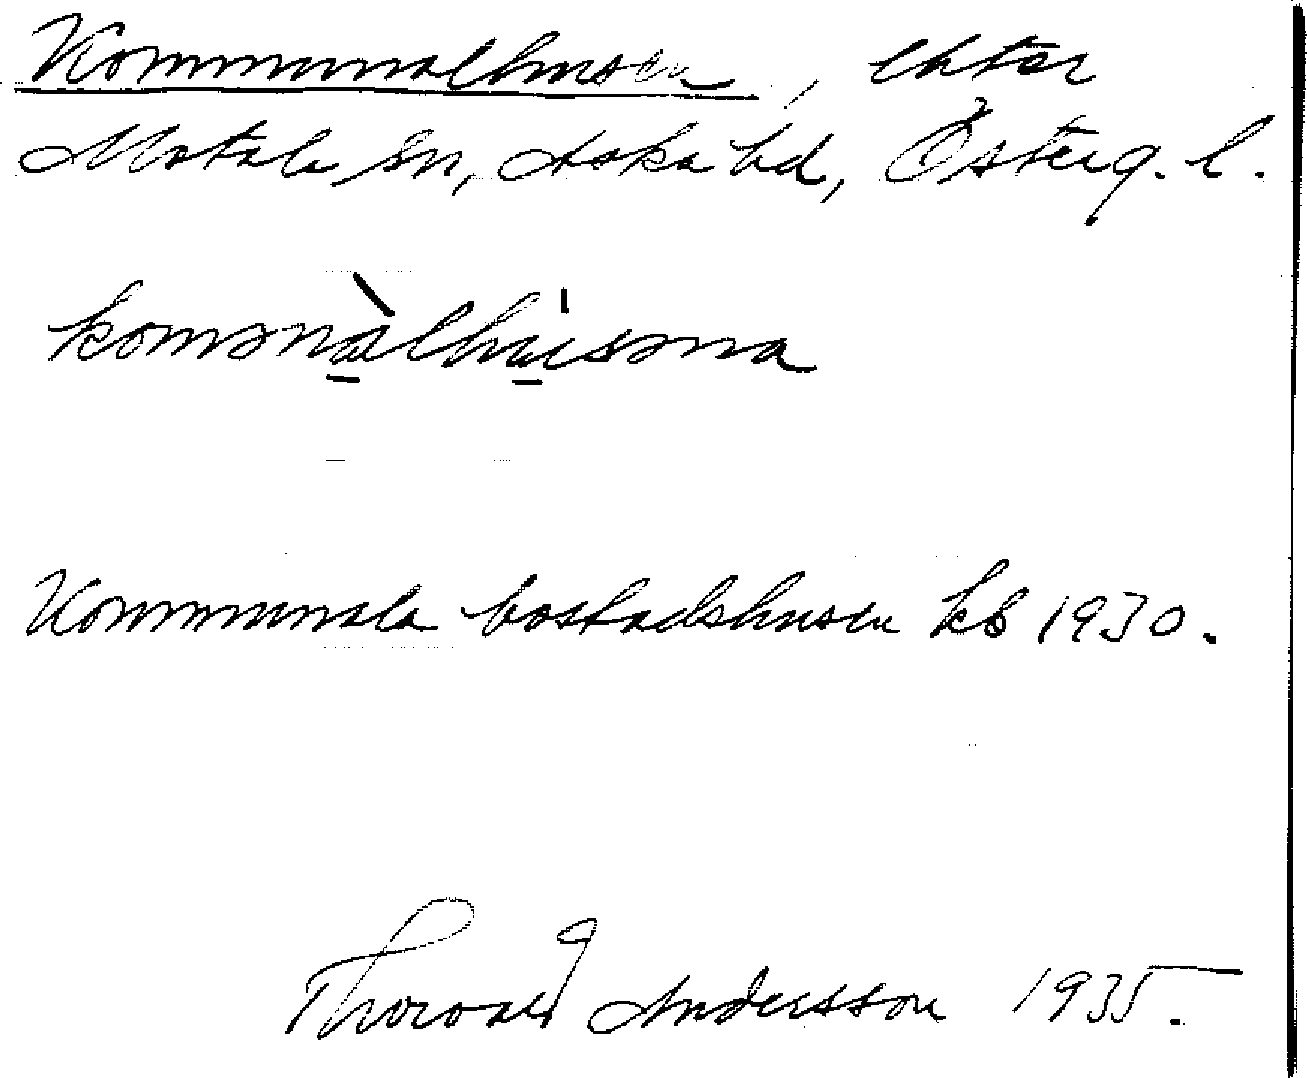 Kommunalhusen, lhter
Motala sn, Aska hd, Österg. l.
komənàlhu̍səna
Kommunala bostadshusen kb 1930.
Thorvald Andersson 1935.